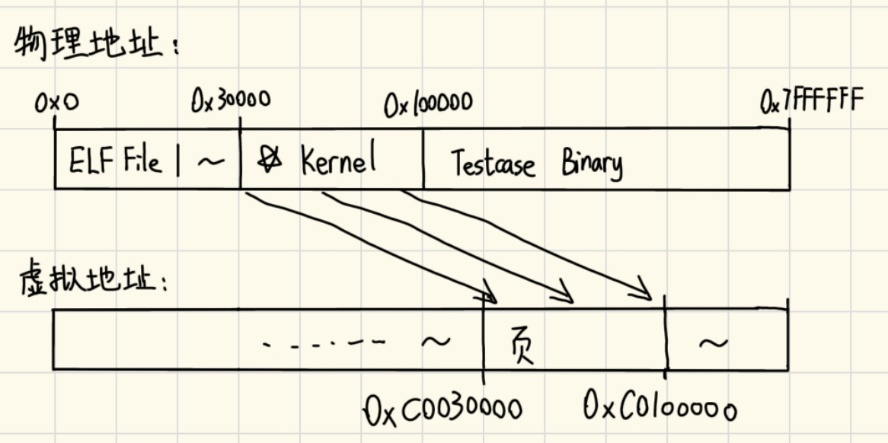 物理地址:
0x0 0x30000 0x100000 0x7FFFFFF
ELF File | ~ Kernel Testcase Binary
虚拟地址:
...... ~ 页 ~
0xC0030000 0xC0100000